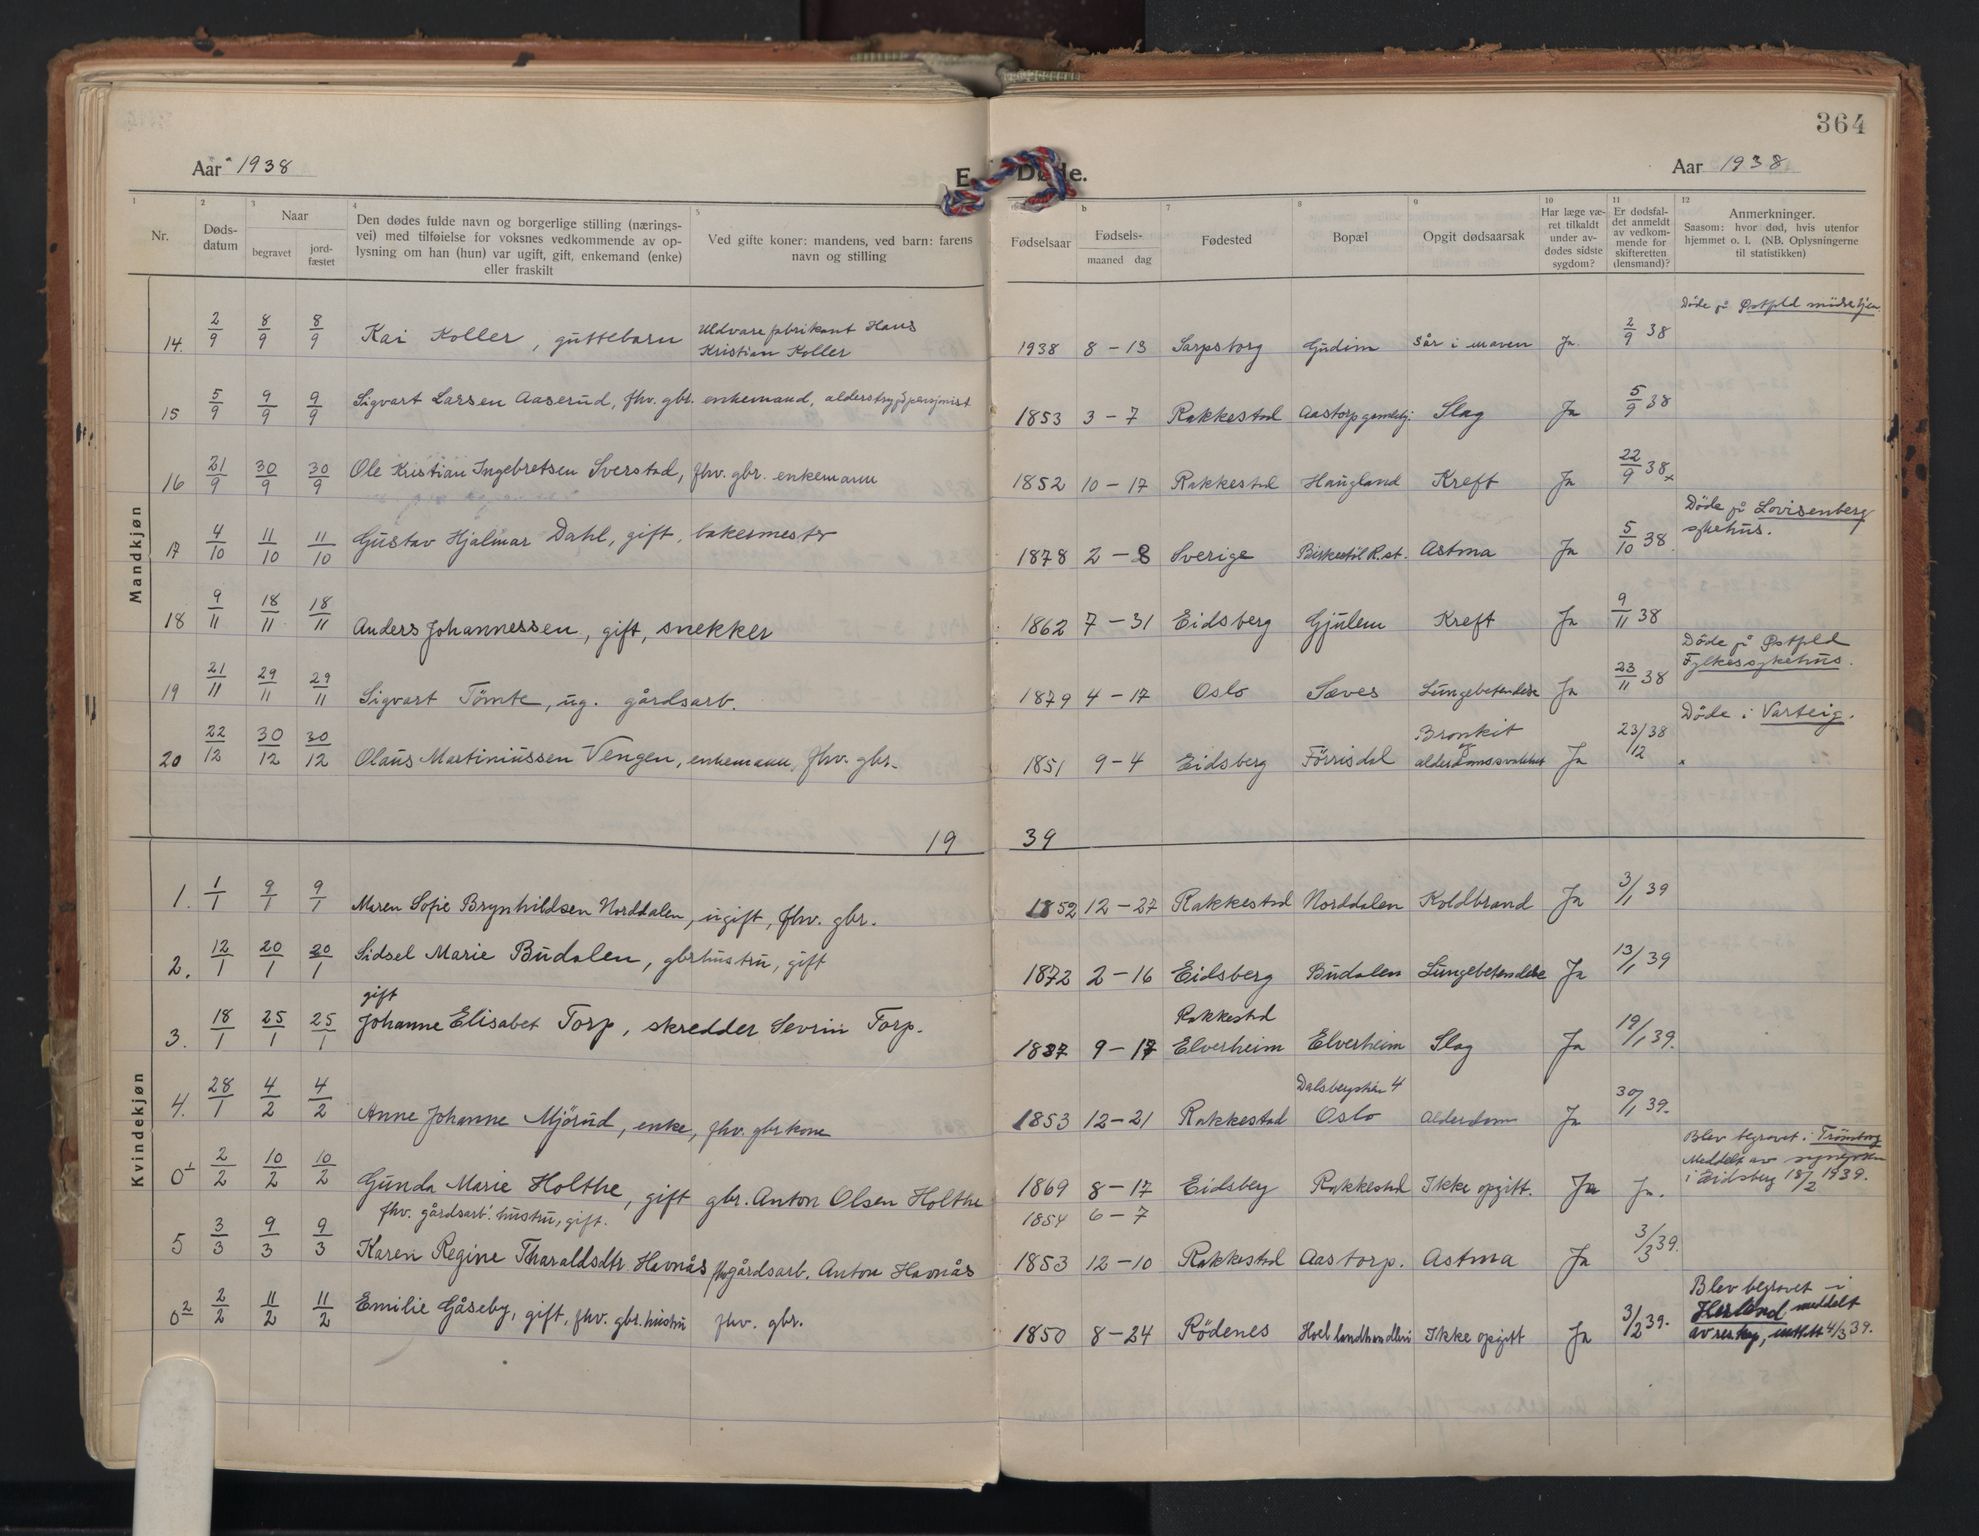 364
Aar 1938
E. Døde.
Aar 1938
1 2 3 4 5 b 7 8 9 10 11 12
Nr.
Døds-
datum
Naar
begravet
jord-
fæstet
Den dødes fulde navn og borgerlige stilling (nærings-
vei) med tilføielse for voksnes vedkommende av op-
lysning om han (hun) var ugift, gift, enkemand (enke)
eller fraskilt
Ved gifte koner: mandens, ved barn: farens
navn og stilling
Fødselsaar
Fødsels-
maaned dag
Fødested
Bopæl
Opgit dødsaarsak
Har læge væ-
ret tilkaldt
under av-
dødes sidste
sygdom?
Er dødsfal-
det anmeldt
av vedkom-
mende for
skifteretten
(lensmand)?
Anmerkninger.
Saasom: hvor død, hvis utenfor
hjemmet o. l. (NB. Oplysningerne
til statistikken)
Mandkjøn
14. 2/9 8/9 8/9 Kai Koller, guttebarn Uldvarefabrikant Hans
Kristian Koller 1938 8 - 13 Sarpsborg Gudim Sår i maven Ja 2/9 38 Døde på Østfold
15 5/9 9/9 9/9 Sigvart Larsen Aaserud, fhv. gbr. enkemand, alderstrygdpensjonist 1853 3 - 7 Rakkestad Aastorp gamlehj. Slag Ja 5/9 38
16 21/9 30/9 30/9 Ole Kristian Ingebretsen Sverstad, fhv. gbr. enkemann 1852 10 - 17 Rakkestad Haugland Kreft Ja 22/9 38 x
17 4/10 11/10 11/10 Gustav Hjalmar Dahl, gift, bakermester 1878 2 - 8 Sverige R.st. Astma Ja 5/10 38 Døde på Lovisenberg
sykehus.
18 9/11 18/11 18/11 Anders Johannessen, gift, snekker 1862 7 - 31 Eidsberg Gjulem Kreft Ja 9/11 38
19 21/11 29/11 29/11 Sigvart Tömte, ug. gårdsarb. 1879 4 - 17 Oslo Sæves Lungebetendelse Ja 23/11 38 Døde på Østfold
Fylkessykehus.
20 22/12 30/12 30/12 Olaus Martiniussen Vengen, enkemann, fhv. gbr. 1851 9 - 4 Eidsberg Förrisdal Bronkit
og
alderdomssvakhet Ja 23/12 38 Døde i Varteig.
x
19 39
Kvindekjøn
1. 1/1 9/1 9/1 Maren Sofie Brynhildsen Norddalen, ugift, fhv. gbr. 1852 12 - 27 Rakkestad Norddalen Koldbrand Ja 3/1 39
2. 12/1 20/1 20/1 Sidsel Marie Budalen, gbrhustru, gift 1872 2 - 16 Eidsberg Budalen Lungebetendelse Ja 13/1 39
gift
3. 18/1 25/1 25/1 Johanne Elisabet Torp, skredder Sevrin Torp. 1887 9 - 17 Rakkestad
Elverheim Elverheim Slag Ja 19/1 39.
4. 28/1 4/2 4/2 Anne Johanne Mjörud, enke, fhv. gbrkone 1853 12 - 21 Rakkestad 4
Oslo Alderdom Ja 30/1 39.
0 1 2/2 10/2 10/2 Gunda Marie Holthe, gift gbr. Anton Olsen Holthe 1869 8 - 17 Eidsberg Rakkestad Ikke opgitt. Ja Ja. Blev begravet i Trömborg
Meddelt av
i Eidsberg 18/2 1939.
fhv. gårdsarb. hustru, gift. 1854 6 - 7
5 3/3 9/3 9/3 Karen Regine Tharaldsdtr. Havnås fhv gårdsarb. Anton Havnås 1853 12 - 10 Rakkestad Aastorp. Astma Ja 3/3 39.
0 2 2/2 11/2 11/2 Emilie Gåseby, gift, fhv. gbr. hustru fhv. gbr. 1850 8 - 24 Rödenes Hoel landhandleri Ikke opgitt Ja 3/2 39. Blev begravet i
Herland meddelt
4/3 39.